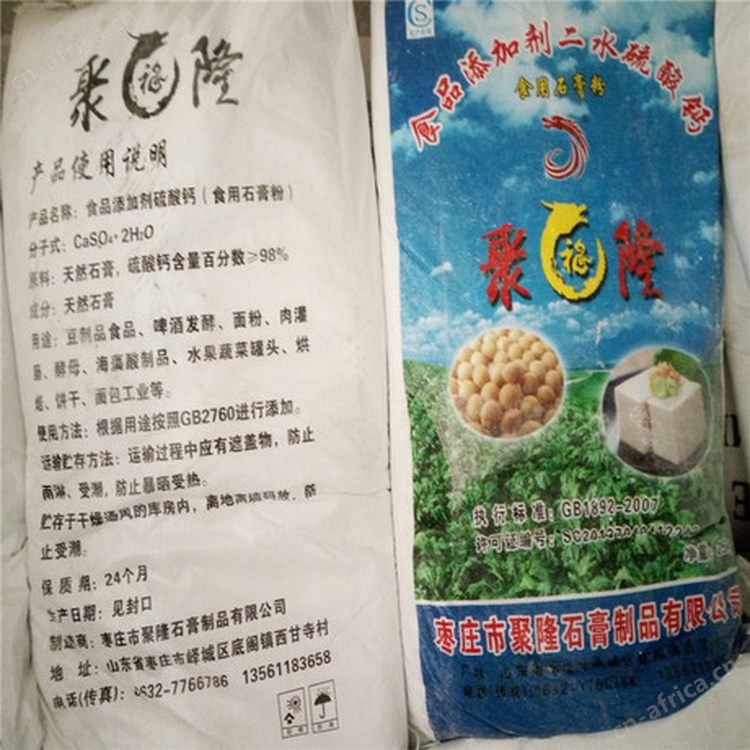 聚福隆
产品使用说明
产品名称：食品添加剂硫酸钙（食用石膏粉）
分子式：CaSO₄·2H₂O
原料：天然石膏，硫酸钙含量百分数≥98%
成分：天然石膏
用途：豆制品食品、啤酒发酵、面粉、肉灌
肠、酵母、海藻酸制品、水果蔬菜罐头、烘
焙、饼干、面包工业等。
使用方法：根据用途按照GB2760进行添加。
运输贮存方法：运输过程中应有遮盖物，防止
雨淋、受潮，防止暴晒受热。
贮存于干燥通风的库房内，离地离墙码放，防
止受潮。
保质期：24个月
生产日期：见封口
制造商：枣庄市聚隆石膏制品有限公司
地址：山东省枣庄市峄城区底阁镇西甘寺村
电话(传真)：0632-7766786 13561183658
S
食品添加剂二水硫酸钙
食用石膏粉
聚福隆
执行标准：GB1892-2007
许可证编号：
净重
枣庄市聚隆石膏制品有限公司
厂址：山东
电话(传真)：0632-7766786
cn-africa.cn